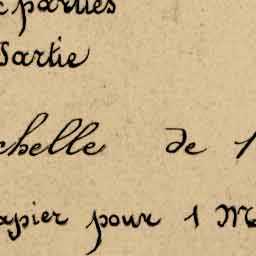 parties
Partie
chelle de 1
apier pour 1 M